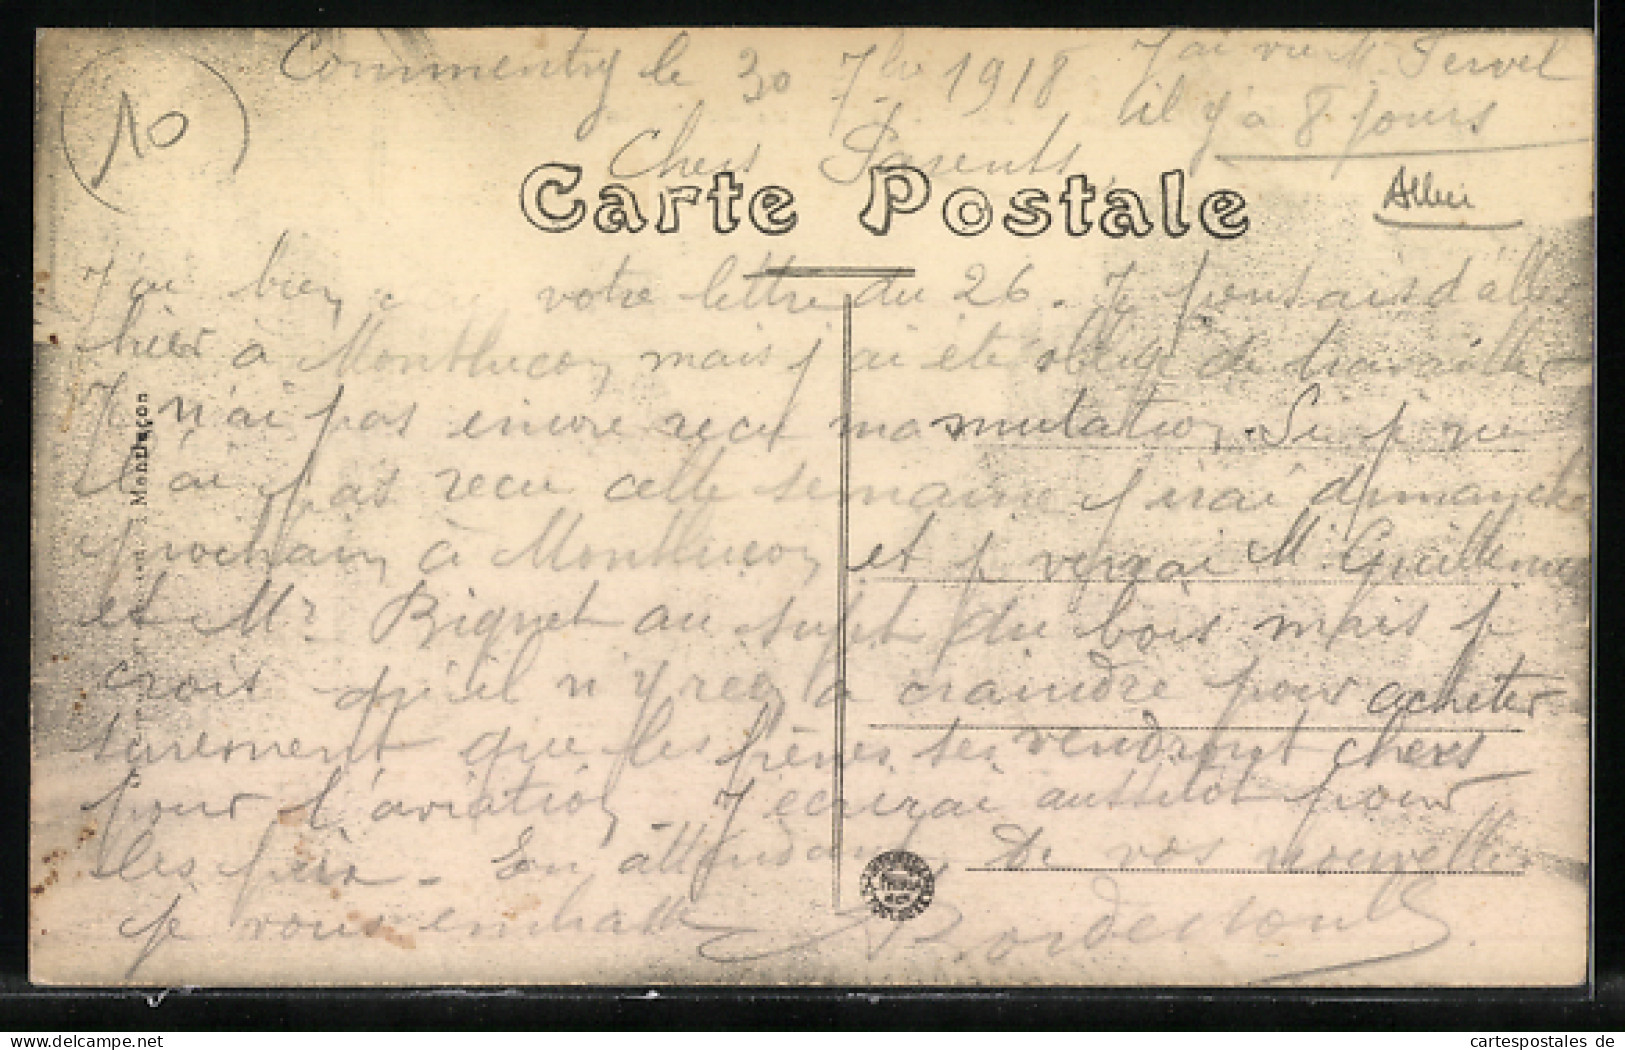 10
Commentry le 30 7bre 1918
J'ai vu M
il y a 8 jours
Chers Parents,
Carte Postale
Allier
J'ai bien votre lettre du 26. Je pensais d'aller
hier à Montlucon mais j'ai été obligé de travailler
Je n'ai pas encore recu ma mutation. Si je ne
l'ai pas recu cette semaine j'irai dimanche
prochain à Montlucon et je verrai Mr Guillaume
et Mr Biquet au sujet du bois mais je
crois qu'il n'y rien a craindre pour acheter
surement que les frères les vendront chers
pour l'aviation. J'ecrirai aussitot pour
les. En attendant De vos nouvelles
je vous embrasse
Bordessoule
Montluçon
cartespostales de
www.cartespostales.de